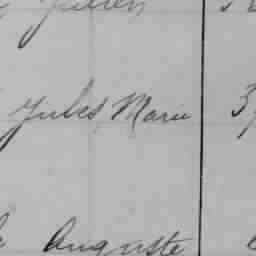 Julien
Jules Marie 3
Auguste